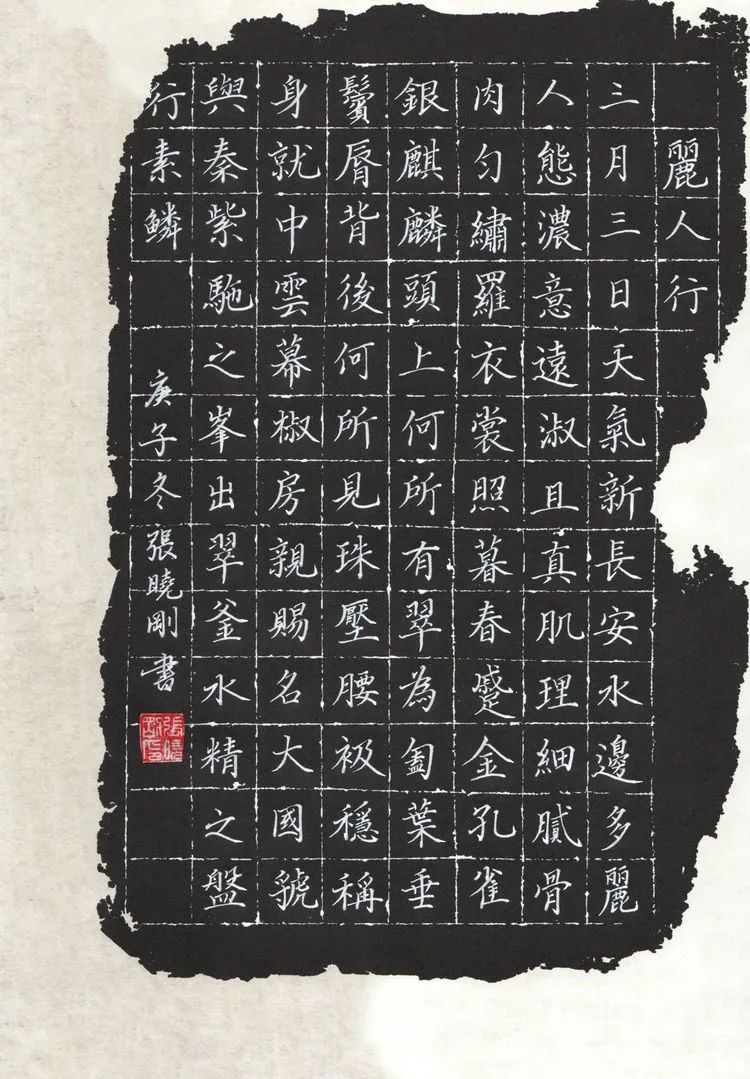 麗人行
三月三日天氣新長安水邊多麗
人態濃意遠淑且真肌理細膩骨
肉勻繡羅衣裳照暮春蹙金孔雀
銀麒麟頭上何所有翠為匎葉垂
鬢脣背後何所見珠壓腰衱穩稱
身就中雲幕椒房親賜名大國虢
與秦紫駞之峯出翠釜水精之盤
行素鱗 庚子冬張曉剛書